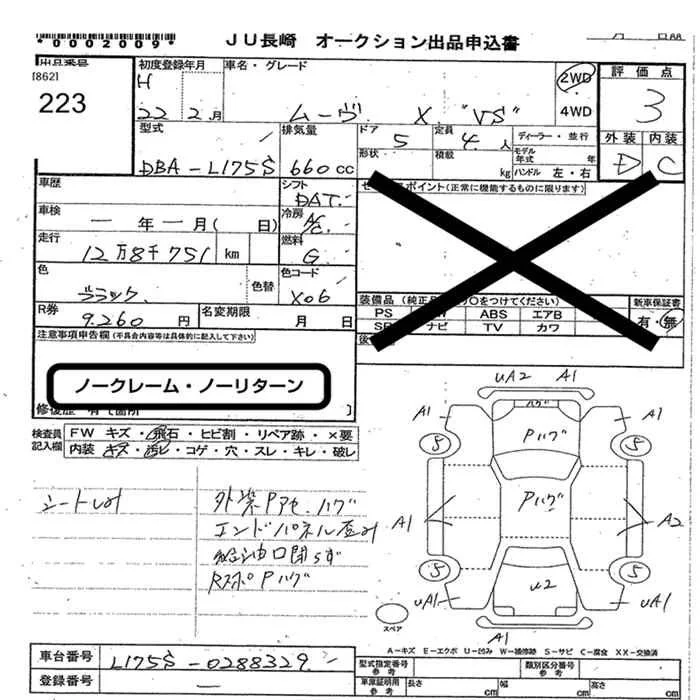 *0002009*
JU長崎 オークション出品申込書
月 日
出品番号
[862]
223
初度登録年月
H
22 2月
車名・グレード
ムーヴ X "VS"
2WD
4WD
評価点
3
外装 内装
D C
型式
DBA-L175S
排気量
660cc
ドア 5
定員 4人
ディーラー・並行
形状
積載 kg
モデル年式 年
ハンドル 左・右
車歴
シフト
DAT
車検
一年一月(日)
冷房
A/C
走行
12万8千751 km
燃料
G
色
ブラック
色替
色コード
X06
R券
9.260円
名変期限
月 日
ポイント(正常に機能するものに限ります)
装備品(純正品 ○をつけてください)
PS ABS エアB
SR ナビ TV カワ
新車保証書
有・無
注意事項申告欄(不具合内容等は具体的に記入して下さい)
ノークレーム・ノーリターン
修復歴 有(箇所 ]
検査員記入欄
FW キズ・飛石・ヒビ割・リペア跡・×要
内装 キズ・汚レ・コゲ・穴・スレ・キレ・破レ
外装Pアセ.ハゲ
エンドパネル歪み
給油口閉らず
RスポPハゲ
UA2 A1
ハゲ
A1 Pハゲ A1
5 5
Pハゲ
A1 A2
5 5
U2
UA1 UA1
A1
スペア
A-キズ E-エクボ U-凹み W-補修跡 S-サビ C-腐食 XX-交換済
車台番号
L175S-0288329
登録番号
一
型式指定番号 参考
類別区分番号 参考
車庫証明用 参考
長さ cm 幅 cm 高さ cm